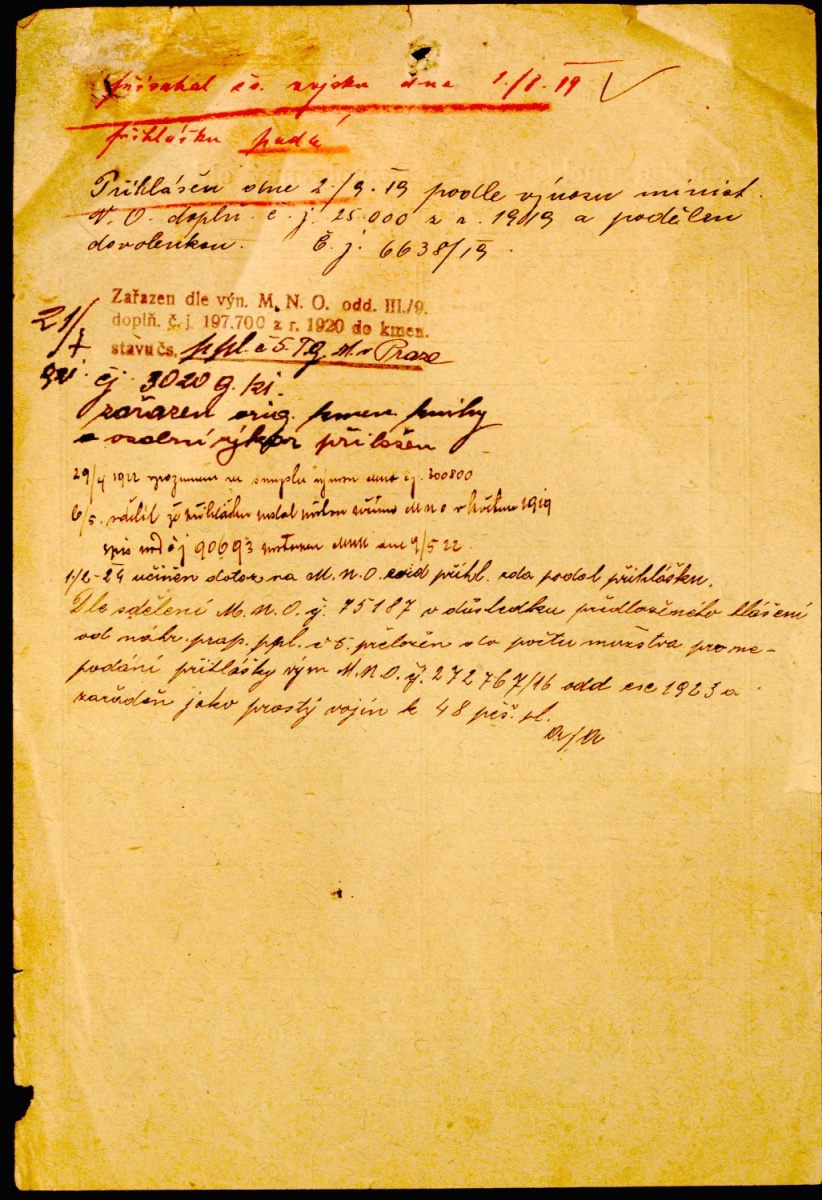 přísahal čs. vojsku dne 1./I. 19
přihlášku podá
Přihlášen dne 2./9. 19 podle výnosu minist.
N. O. doplň. č. j. 25.000 z r. 1919 a podělen
dovolenkou. Č. j. 6638/19.
Zařazen dle výn. M. N. O. odd. III./9.
doplň. č. j. 197.700 z r. 1920 do kmen.
stavu čs. ppl. č 5. T. G. M. v Praze
21/
čj. 3020 g.
zařazen orig. kmen. knihy
a osobní výkaz přiložen
29/4 1922 ve smyslu výnosu MNO čj. 300800
6/5. sdělil že přihlášku podal přímo MNO v květnu 1919
spis čj 90693 MNO dne 9/5 22.
1/2-24 učiněn dotaz na M. N. O. přihl. zda podal přihlášku.
Dle sdělení M. N. O. čj. 75187 v důsledku předloženého hlášení
od náhr. prap. ppl. č 5. přeložen do počtu mužstva pro ne-
podání přihlášky výn M. N. O. čj. 272767/16 odd 1923 a
zařáděn jako prostý vojín k 48 pěš. pl.